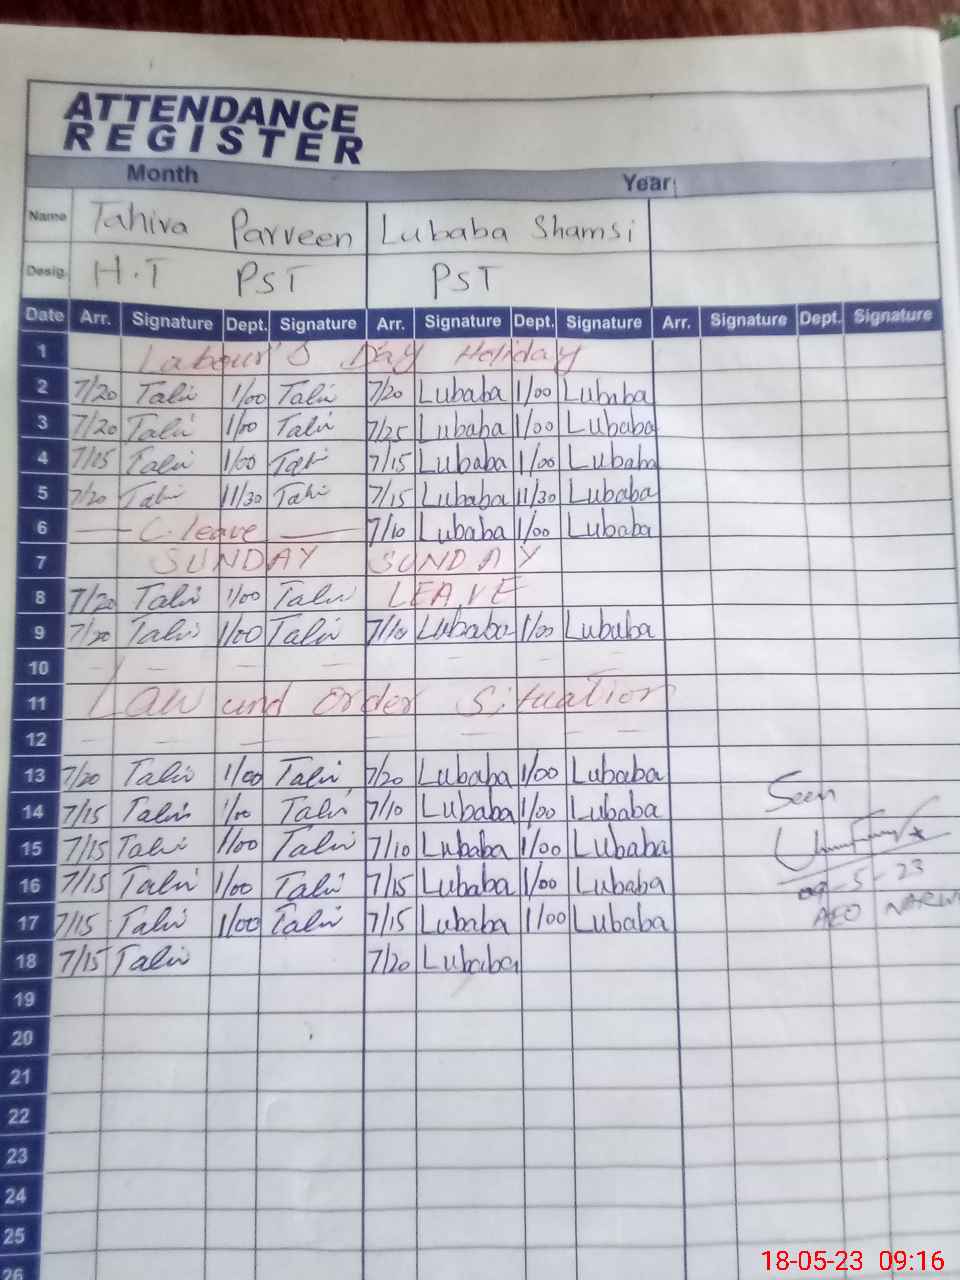 ATTENDANCE
REGISTER
Month Year
Name Tahira Parveen Lubaba Shamsi
Desig. H.T PST PST
Date Arr. Signature Dept. Signature Arr. Signature Dept. Signature Arr. Signature Dept. Signature
1 Labour's Day Holiday
2 7/20 Tahi 1/00 Tahi 7/20 Lubaba 1/00 Lubaba
3 7/20 Tahi 1/00 Tahi 7/25 Lubaba 1/00 Lubaba
4 7/15 Tahi 1/00 Tahi 7/15 Lubaba 1/00 Lubaba
5 7/20 Tahi 11/30 Tahi 7/15 Lubaba 11/30 Lubaba
6 — C.leave — 7/10 Lubaba 1/00 Lubaba
7 SUNDAY SUNDAY
8 7/20 Tahi 1/00 Tahi LEAVE
9 7/20 Tahi 1/00 Tahi 7/10 Lubaba 1/00 Lubaba
10
11 Law and order Situation
12
13 7/20 Tahi 1/00 Tahi 7/20 Lubaba 1/00 Lubaba
14 7/15 Tahi 1/00 Tahi 7/10 Lubaba 1/00 Lubaba
Seen
15 7/15 Tahi 1/00 Tahi 7/10 Lubaba 1/00 Lubaba
16 7/15 Tahi 1/00 Tahi 7/15 Lubaba 1/00 Lubaba
09-5-23
17 7/15 Tahi 1/00 Tahi 7/15 Lubaba 1/00 Lubaba
AEO
18 7/15 Tahi 7/20 Lubaba
19
20
21
22
23
24
25
26
18-05-23 09:16